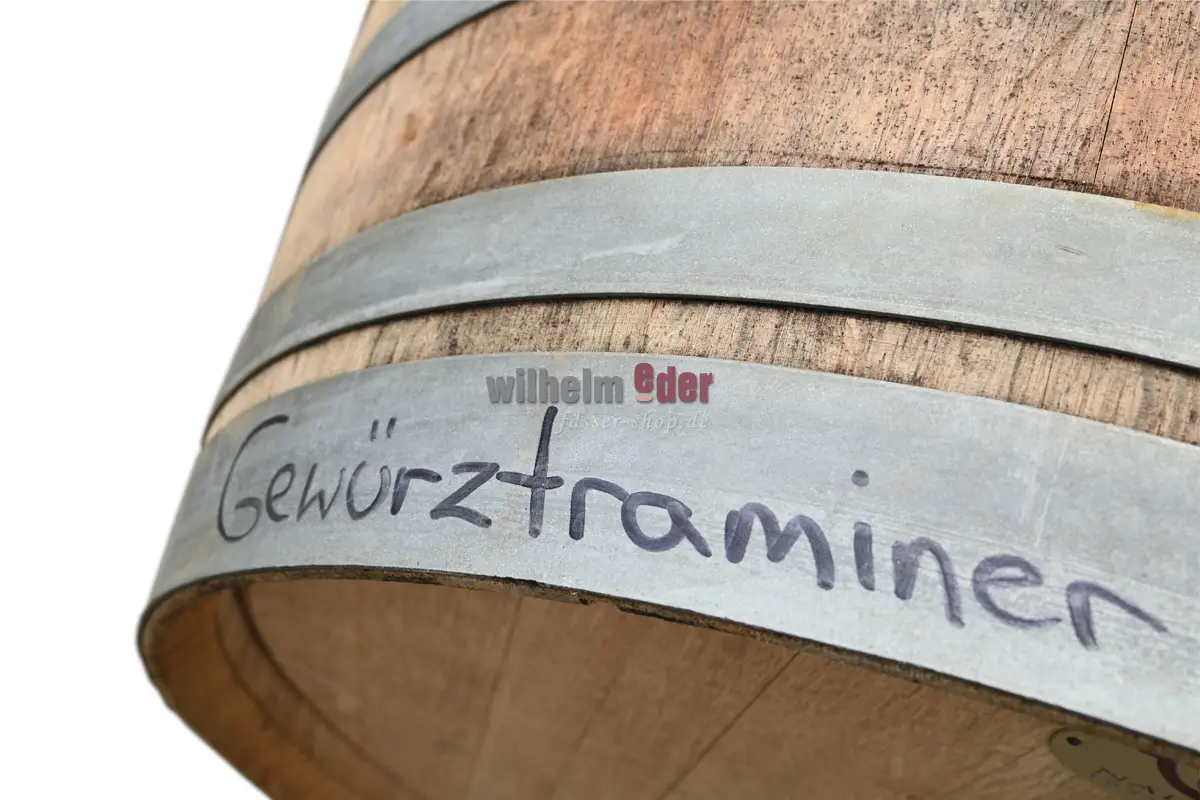 wilhelm eder
fässer-shop.de
Gewürztraminer